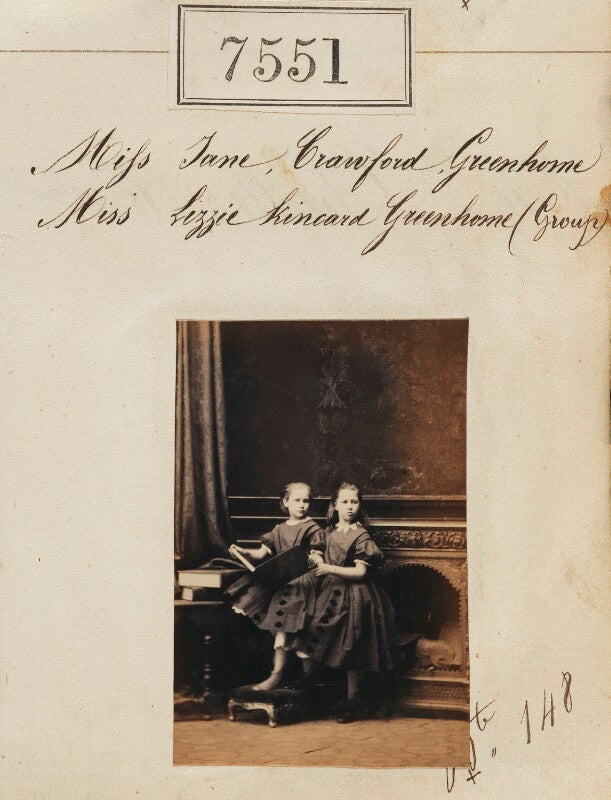 7551
Miss Jane, Crawford Greenhome
Miss Lizzie Kincard Greenhome (Group)
148